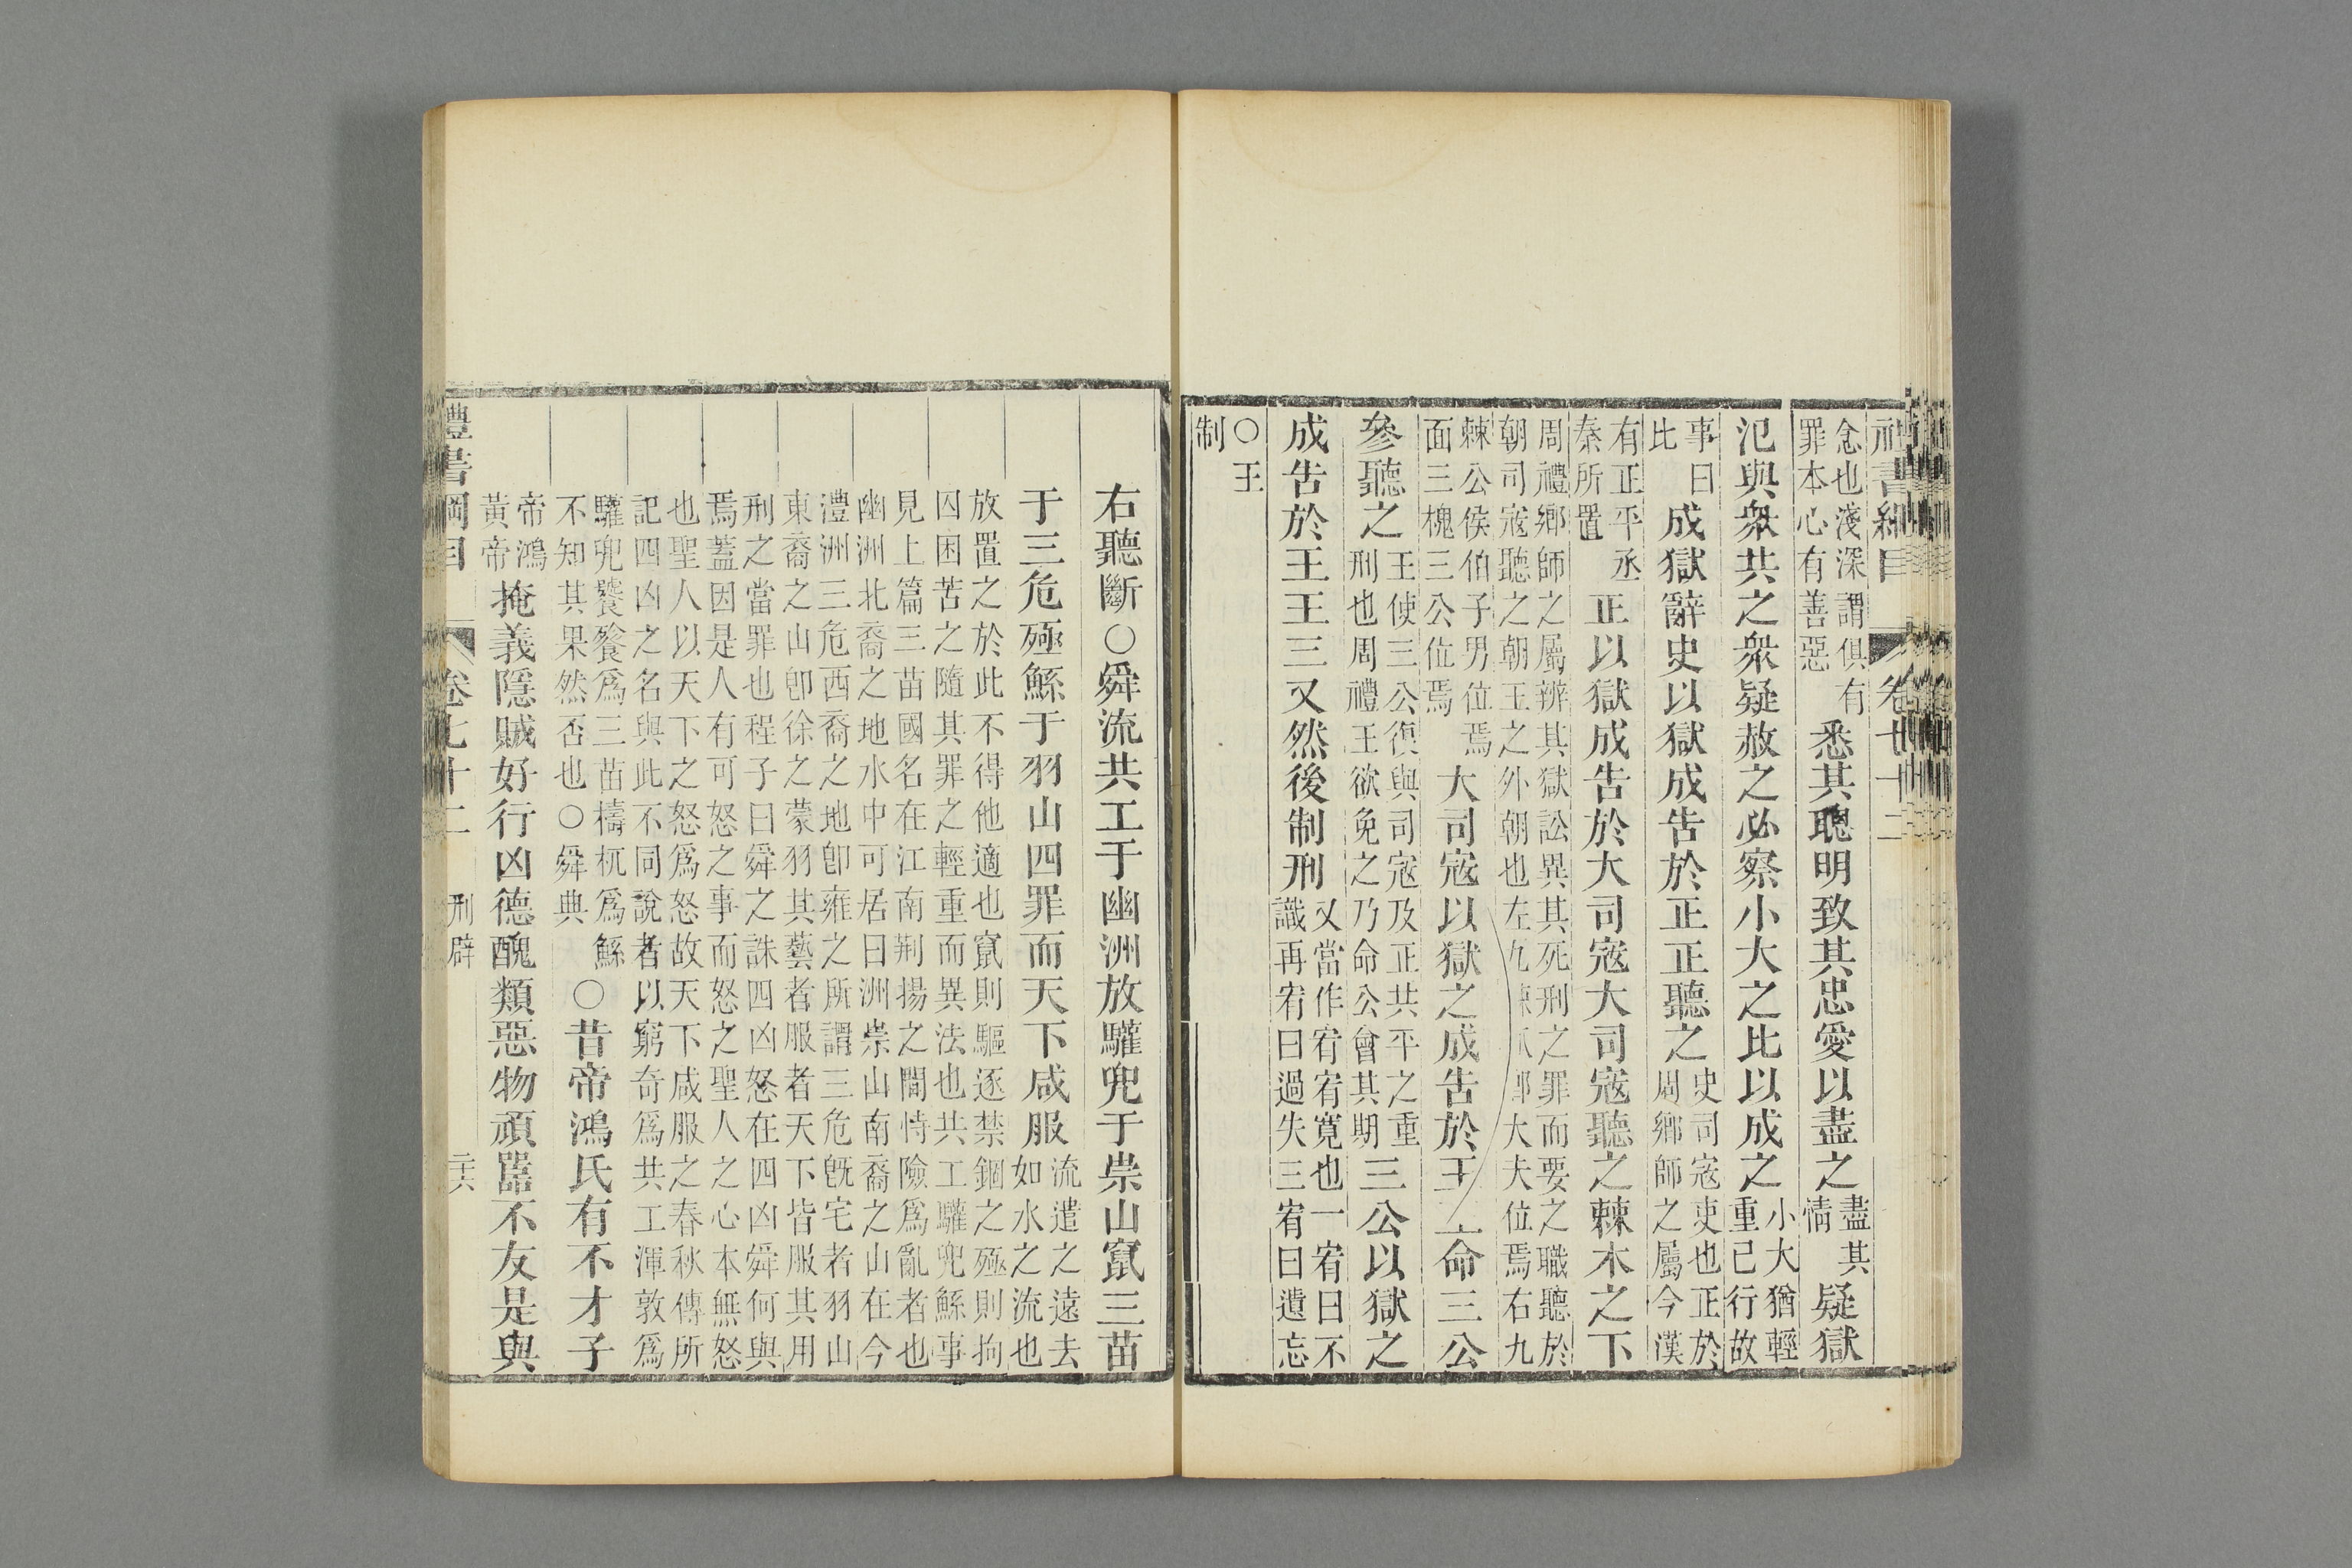 禮書綱目 卷七十二
念也淺深謂俱有
罪本心有善惡
悉其聰明致其忠愛以盡之
盡其
情
疑獄
氾與衆共之衆疑赦之必察小大之比以成之
小大猶輕
重已行故
事曰
比
成獄辭史以獄成告於正正聽之
史司寇吏也正於
周鄉師之屬今漢
有正平丞
秦所置
正以獄成告於大司寇大司寇聽之棘木之下
周禮鄉師之屬辨其獄訟異其死刑之罪而要之職聽於
朝司寇聽之朝王之外朝也左九棘孤卿大夫位焉右九
棘公侯伯子男位焉
面三槐三公位焉
大司寇以獄之成告於王王命三公
參聽之
王使三公復與司寇及正共平之重
刑也周禮王欲免之乃命公會其期
三公以獄之
成告於王王三又然後制刑
又當作宥宥寬也一宥曰不
識再宥曰過失三宥曰遺忘
○王
制
右聽斷○舜流共工于幽洲放驩兜于崇山竄三苗
于三危殛鯀于羽山四罪而天下咸服
流遣之遠去
如水之流也
放置之於此不得他適也竄則驅逐禁錮之殛則拘
囚困苦之隨其罪之輕重而異法也共工驩兜鯀事
見上篇三苗國名在江南荆揚之間恃險爲亂者也
幽洲北裔之地水中可居曰洲崇山南裔之山在今
澧洲三危西裔之地卽雍之所謂三危旣宅者羽山
東裔之山卽徐之蒙羽其藝者服者天下皆服其用
刑之當罪也程子曰舜之誅四凶怒在四凶舜何與
焉蓋因是人有可怒之事而怒之聖人之心本無怒
也聖人以天下之怒爲怒故天下咸服之春秋傳所
記四凶之名與此不同說者以窮奇爲共工渾敦爲
驩兜饕餮爲三苗檮杌爲鯀
不知其果然否也○舜典
○昔帝鴻氏有不才子
帝鴻
黃帝
掩義隱賊好行凶德醜類惡物頑嚚不友是與
禮書綱目 卷七十二 刑辟 二十六